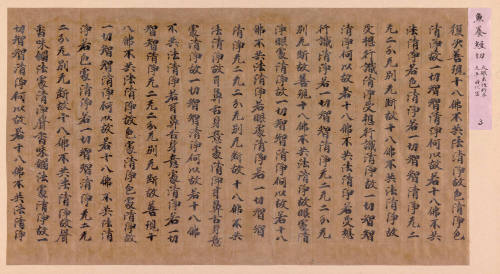 復次善現十八佛不共法清淨故色
清淨色清淨故一切智智清淨何以故若十八佛不
共法清淨若色清淨若一切智智清淨无二
无二分无別无斷故十八佛不共法清淨故
受想行識清淨受想行識清淨故一切智智
清淨何以故若十八佛不共法清淨若受想
行識清淨若一切智智清淨无二无二分无
別无斷故善現十八佛不共法清淨故眼處清
淨眼處清淨故一切智智清淨何以故若十八
佛不共法清淨若眼處清淨若一切智智
清淨无二无二分无別无斷故十八佛不共
法清淨故耳鼻舌身意處清淨耳鼻舌身意
處清淨故一切智智清淨何以故若十八佛
不共法清淨若耳鼻舌身意處清淨若一切
智智清淨无二无二分无別无斷故善現十
八佛不共法清淨故色處清淨色處清淨故
一切智智清淨何以故若十八佛不共法清
淨若色處清淨若一切智智清淨无二无
二分无別无斷故十八佛不共法清淨故聲
香味觸法處清淨聲香味觸法處清淨故一
切智智清淨何以故若十八佛不共法清淨
魚養経切
3